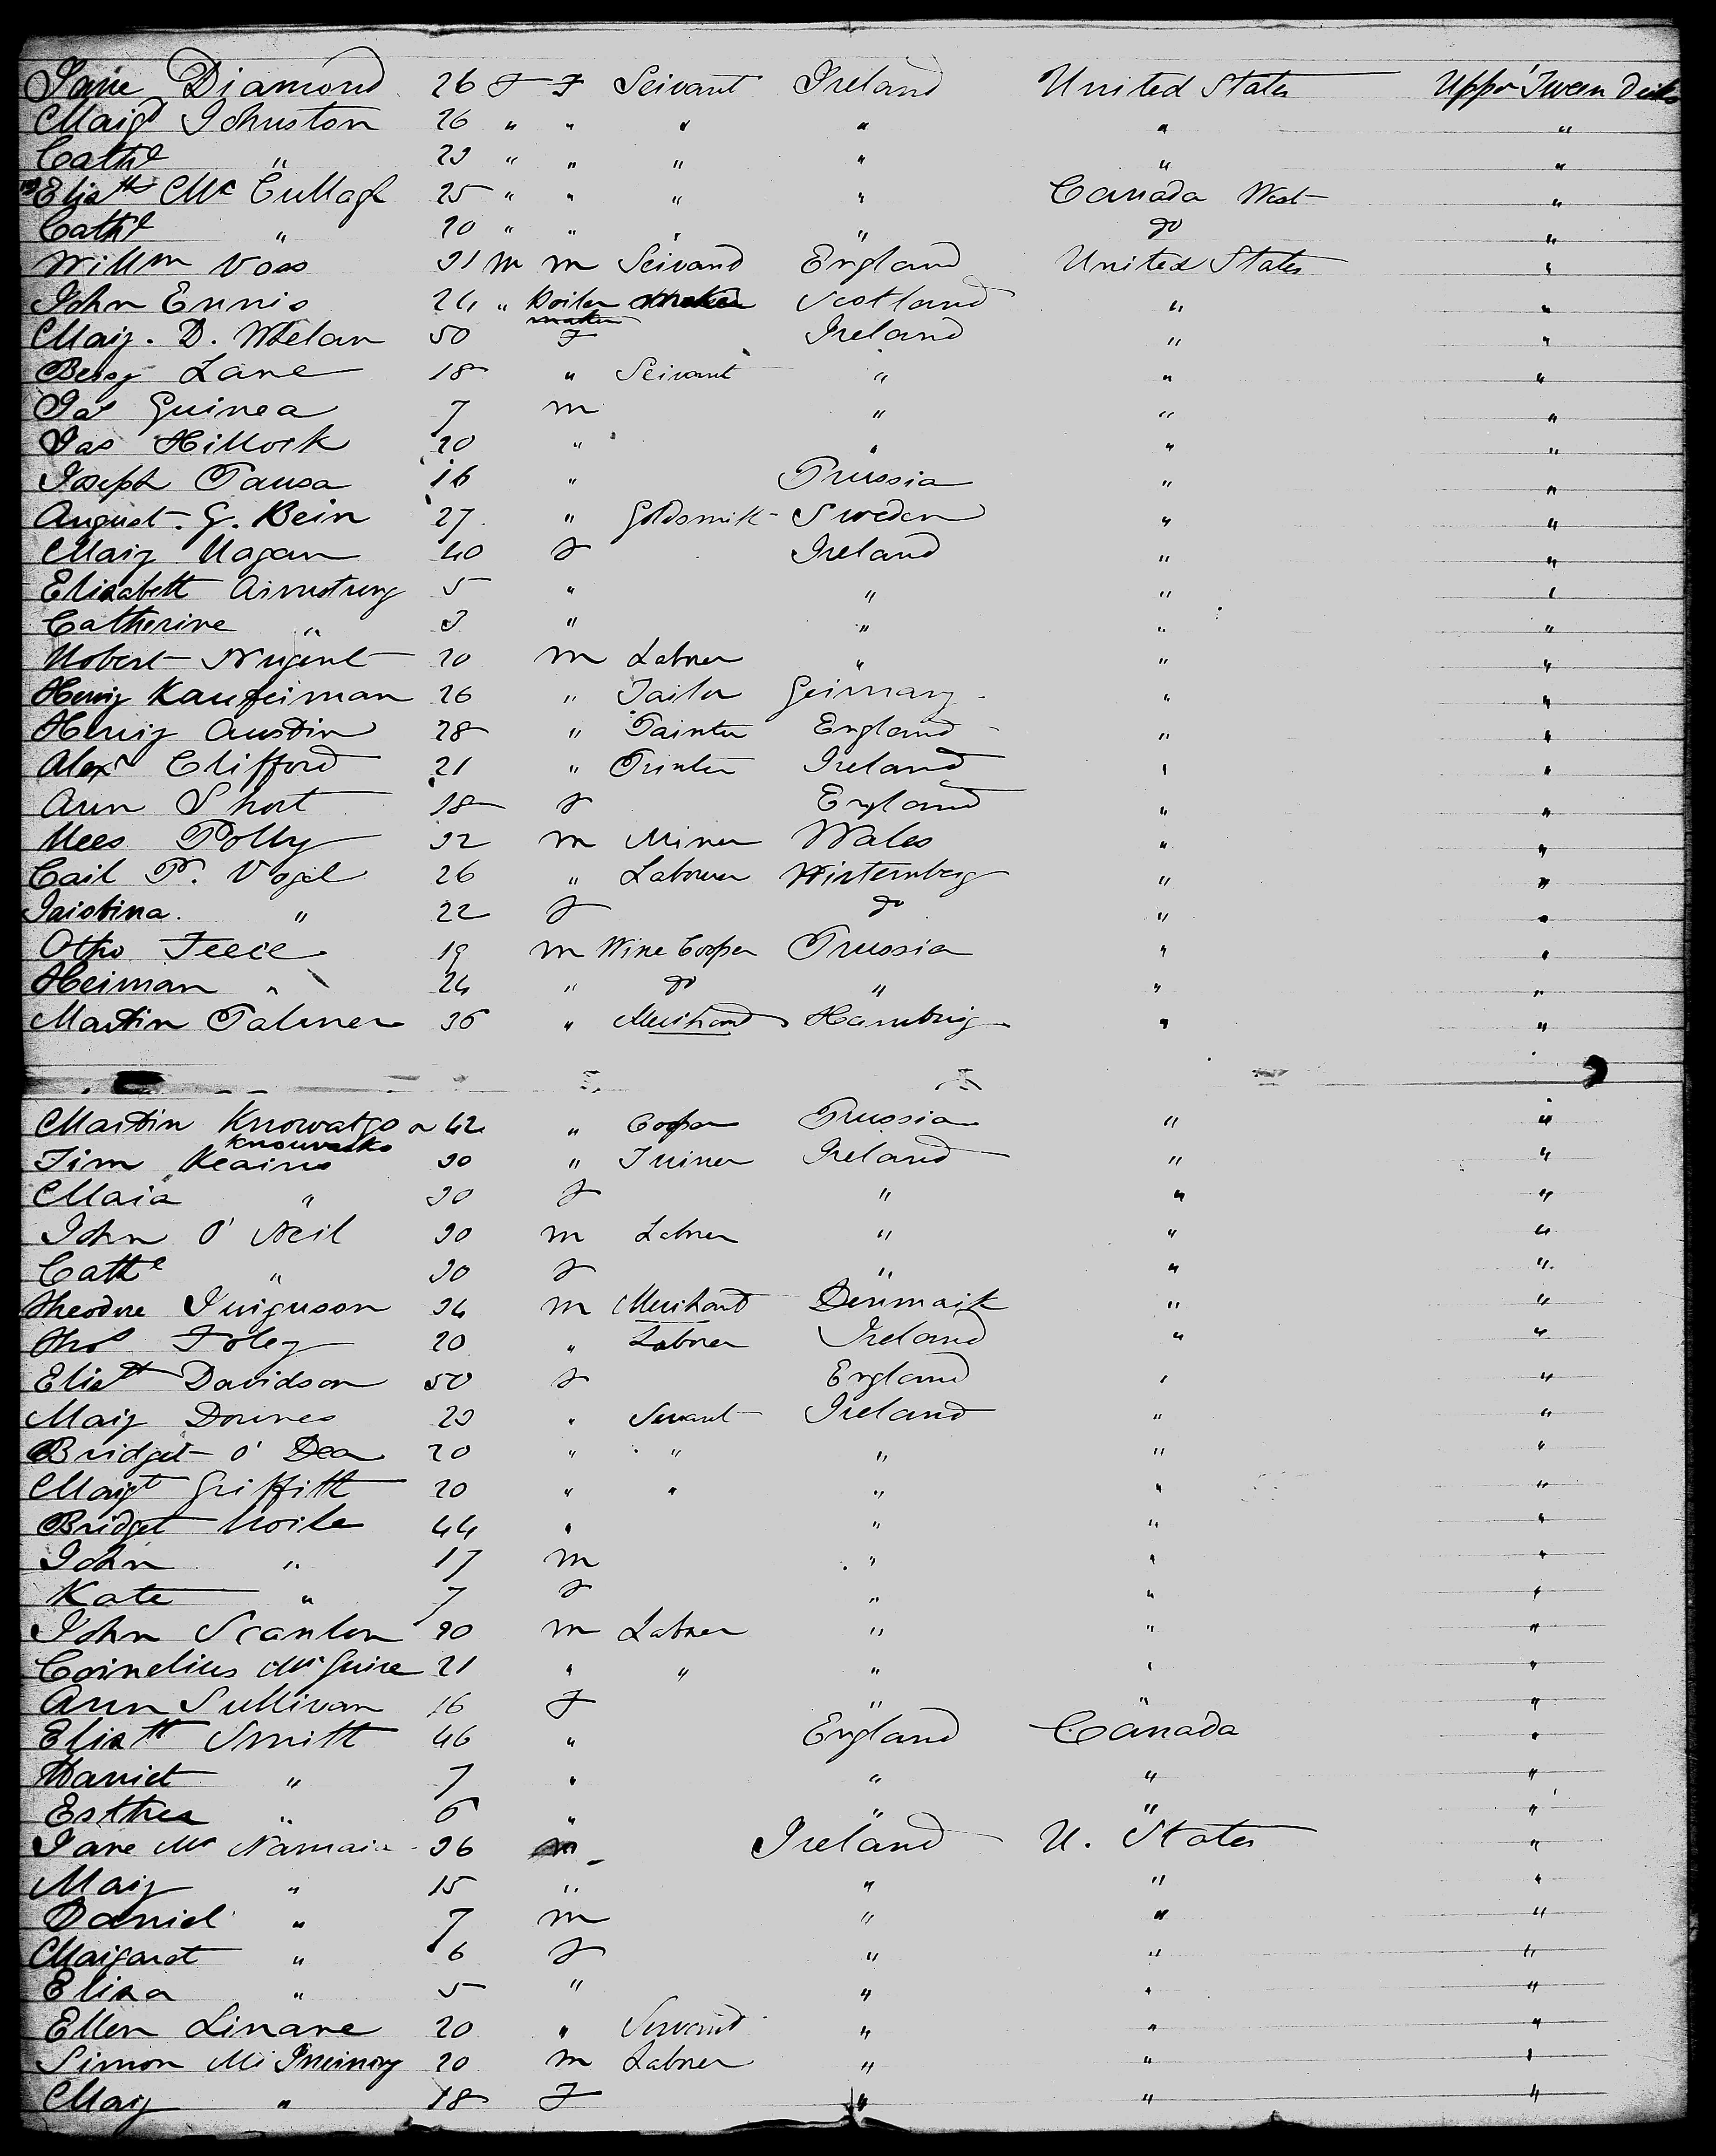 Jane Diamond 26 F F Servant Ireland United States Upper 'Tween Decks
Margt Johnston 26 " " " " " "
Cathe " 23 " " " " " "
Elizth Mc Cullagh 25 " " " " Canada West "
Cathe " 20 " " " " do "
Willm Voss 31 m m Servand England United States "
John Ennis 24 " Boiler maker Scotland " "
Mary. D. Whelan 50 F Ireland " "
Bessy Lane 18 " Servant " " "
Jas Guinea 7 m " " "
Jas Hillock 20 " " " "
Joseph Pausa 16 " Prussia " "
August. G. Bein 27 " Goldsmith Sweden " "
Mary Hagan 40 F Ireland " "
Elizabeth Armstrong 5 " " " "
Catherine " 3 " " " "
Robert Nugent 20 m Labrer " " "
Henry Kaufferman 26 " Tailor Germany " "
Henry Austin 28 " Painter England " "
Alexr Clifford 21 " Printer Ireland " "
Ann Short 18 F England " "
Rees Polly 32 m Miner Wales " "
Carl P. Vogel 26 " Labourer Wirtemberg " "
" 22 F do " "
Otho Feece 19 m Wine Cooper Prussia " "
Herman " 24 " do " " "
Martin Palmer 36 " Merchand Hamburg " "
Martin Knowatzo a 42 " Cooper Prussia " "
Knouvasko
Tim Kearns 30 " Joiner Ireland " "
Mara " 30 F " " "
John O' Neil 30 m Labrer " " "
Cathe " 30 F " " "
Theodore Furguson 34 m Merchant Denmark " "
Thos Foley 20 " Labrer Ireland " "
Elizth Davidson 50 F England " "
Mary Downes 23 " Servant Ireland " "
Bridget O' Dea 20 " " " " "
Margt Griffith 20 " " " " "
Bridget 44 " " " "
John " 17 m " " "
Kate " 7 F " " "
John Scanlon 20 m Labrer " " "
Cornelius McGuire 21 " " " " "
Ann Sullivan 16 F " " "
Elizth Smith 46 " England Canada "
Harriet " 7 " " " "
Esther " 6 " " " "
Jane Mc Namara 36 m Ireland U. States "
Mary " 15 " " " "
Daniel " 7 m " " "
Margaret " 6 F " " "
Eliza " 5 " " " "
Ellen Linane 20 " Servand " " "
Simon Mc Inerney 20 m Labrer " " "
Mary " 18 F " " "